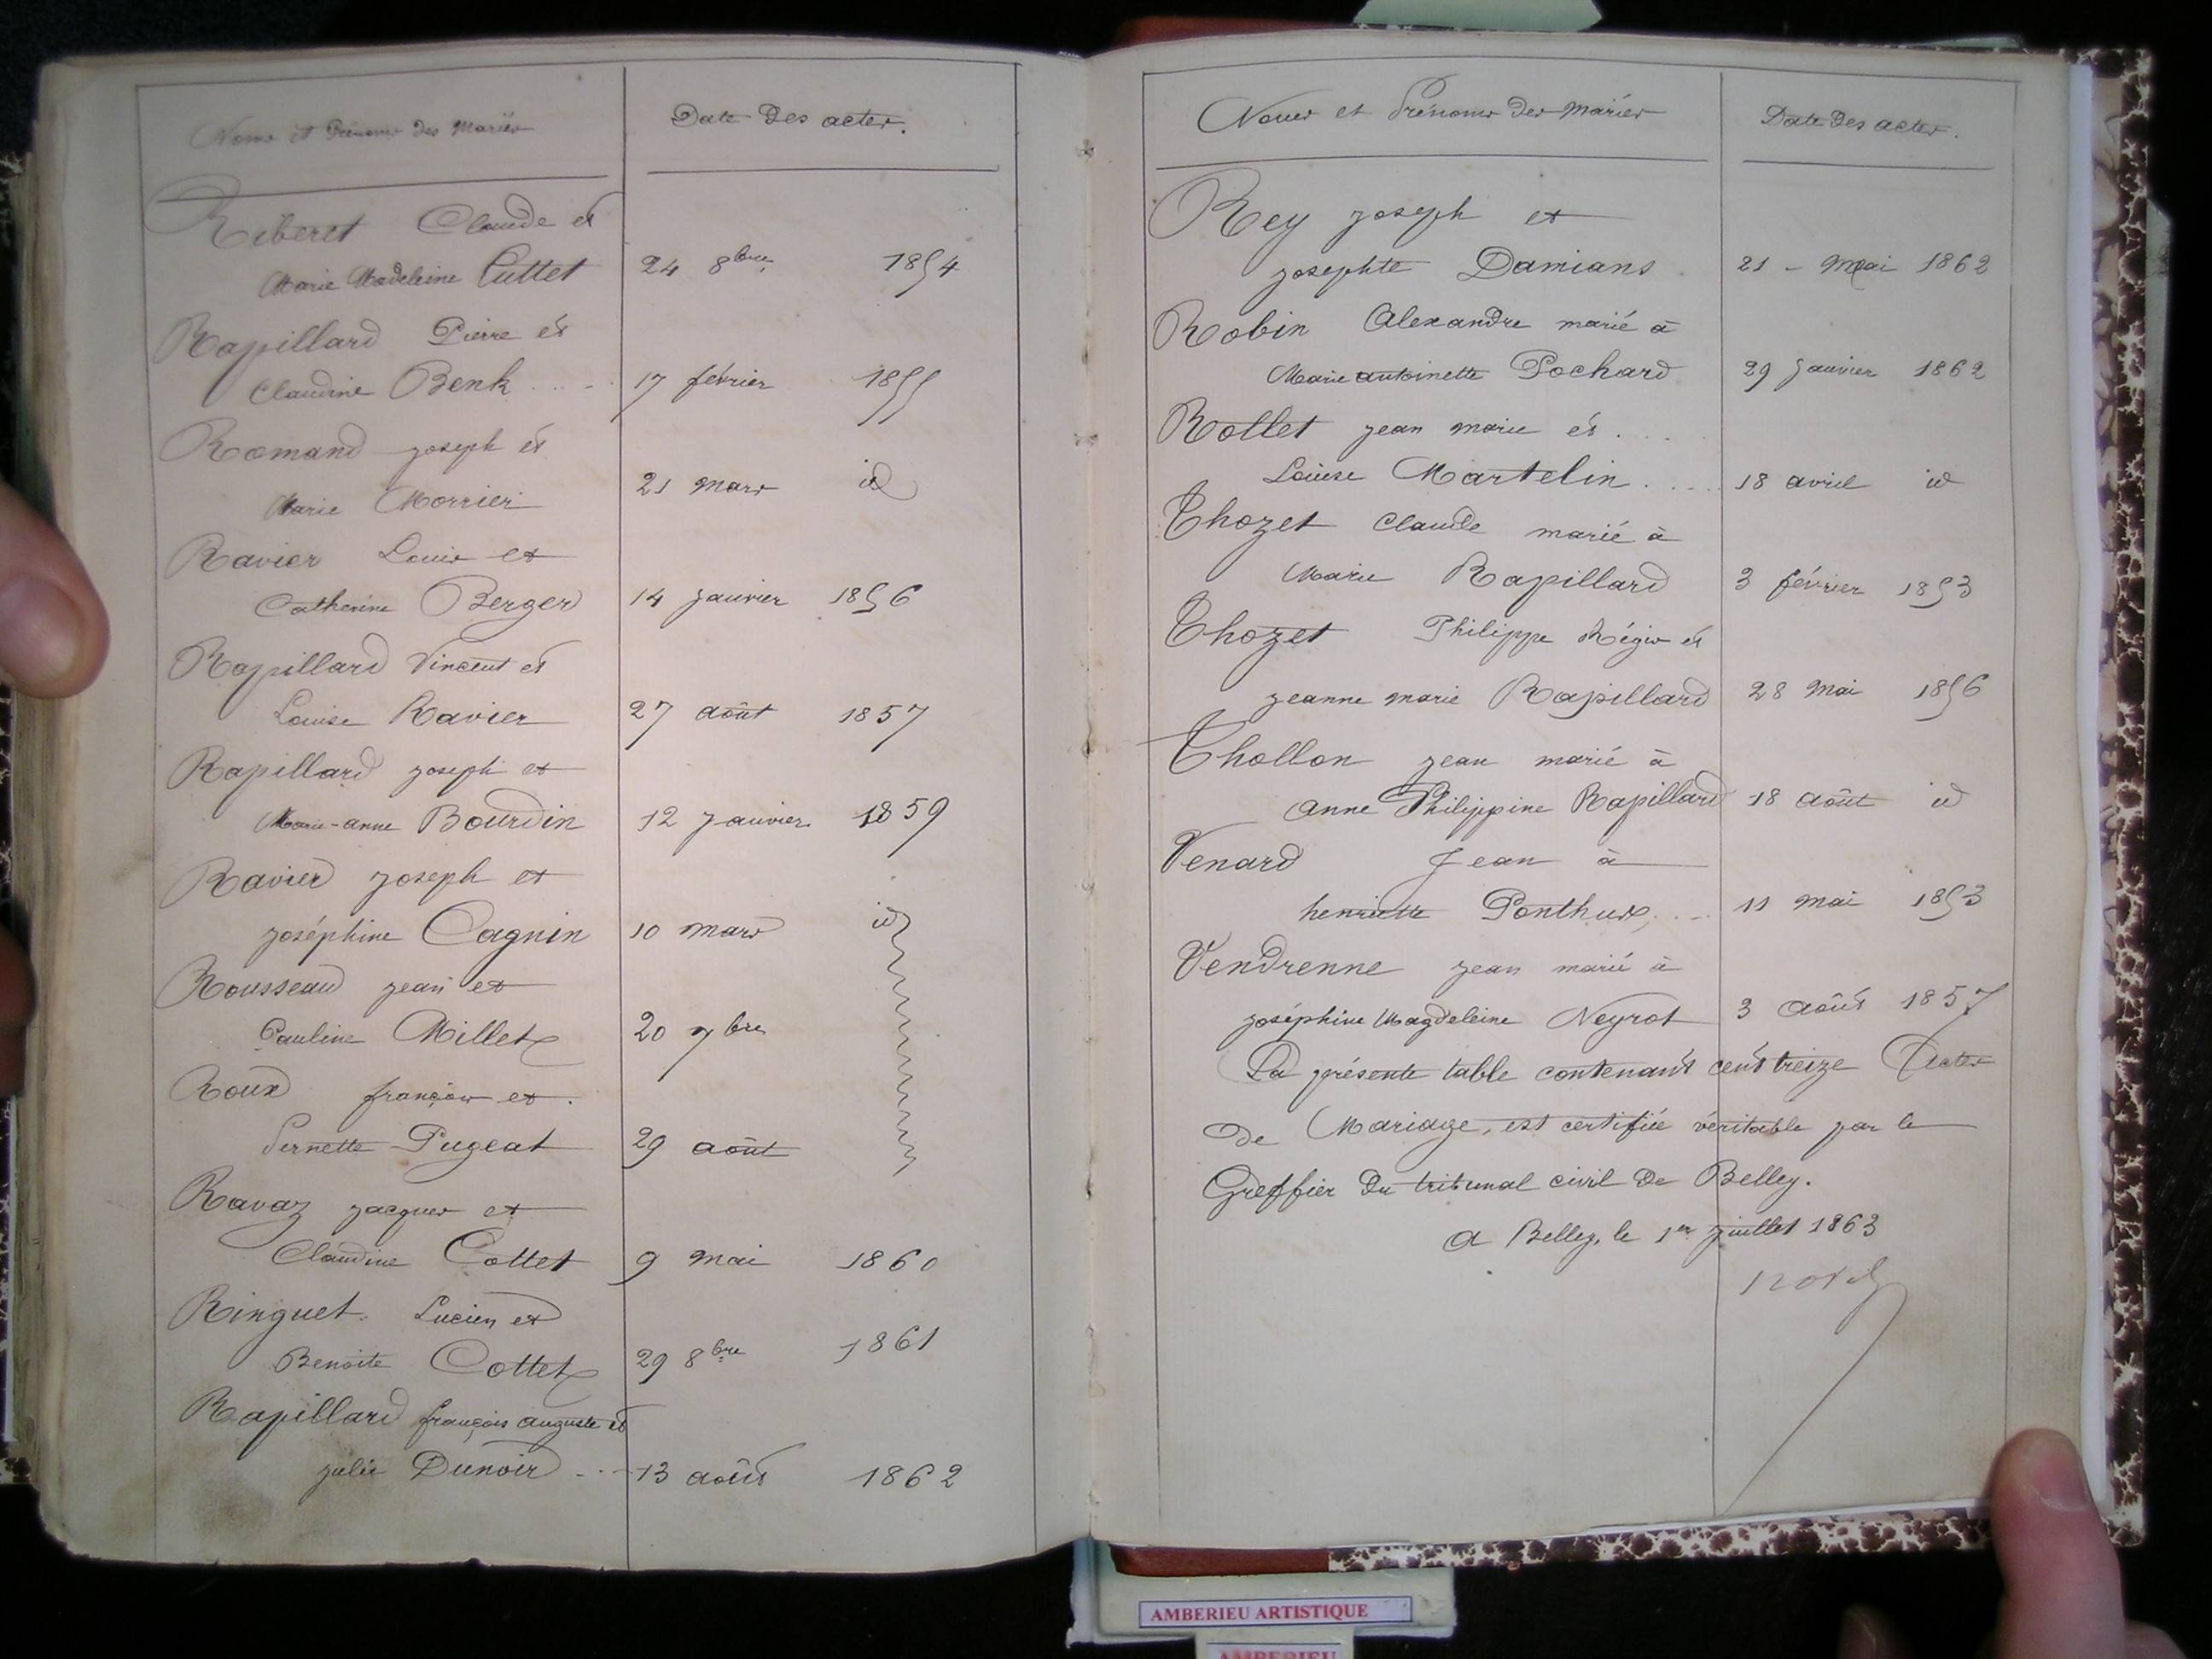 Noms et Prénoms des Mariés
Date des actes.
Riberet Claude et
Marie Madeleine Cuttet 24 8bre 1854
Rapillard Pierre et
Claudine Benk .... 17 février 1855
Romand joseph et
Marie Morrier 21 mars id
Ravier Louis et
Catherine Berger 14 janvier 1856
Rapillard Vincent et
Louise Ravier 27 août 1857
Rapillard joseph et
Marie-anne Bourdin 12 janvier 1859
Ravier joseph et
joséphine Cagnin 10 mars id
Rousseau jean et
Pauline Millet 20 7bre
Roux françois et.
Pernette Pugeat 29 août
Ravaz jacques et
Claudine Cottet 9 mai 1860
Ringuet. Lucien et
Benoite Cottet 29 8bre 1861
Rapillard françois auguste et
julie Dunoir ... 13 août 1862
Noms et Prénoms des Mariés
Date des actes.
Rey joseph et
josephte Damians 21 - mai 1862
Robin Alexandre marié à
Marie antoinette Pochard 29 janvier 1862
Rollet jean marie et ...
Louise Martelin .... 18 avril id
Thozet Claude marié à
Marie Rapillard 3 février 1853
Thozet Philippe Régis et
jeanne marie Rapillard 28 mai 1856
Thollon jean marié à
anne Philippine Rapillard 18 août id
Venard Jean à
henriette Ponthus, ... 11 mai 1853
Vendrenne jean marié à
joséphine Magdeleine Neyrot 3 août 1857
La présente table contenant cent treize Actes
de Mariage, est certifiée véritable par le
Greffier du tribunal civil de Belley.
A Belley, le 1er juillet 1863
AMBERIEU ARTISTIQUE
AMBERIEU